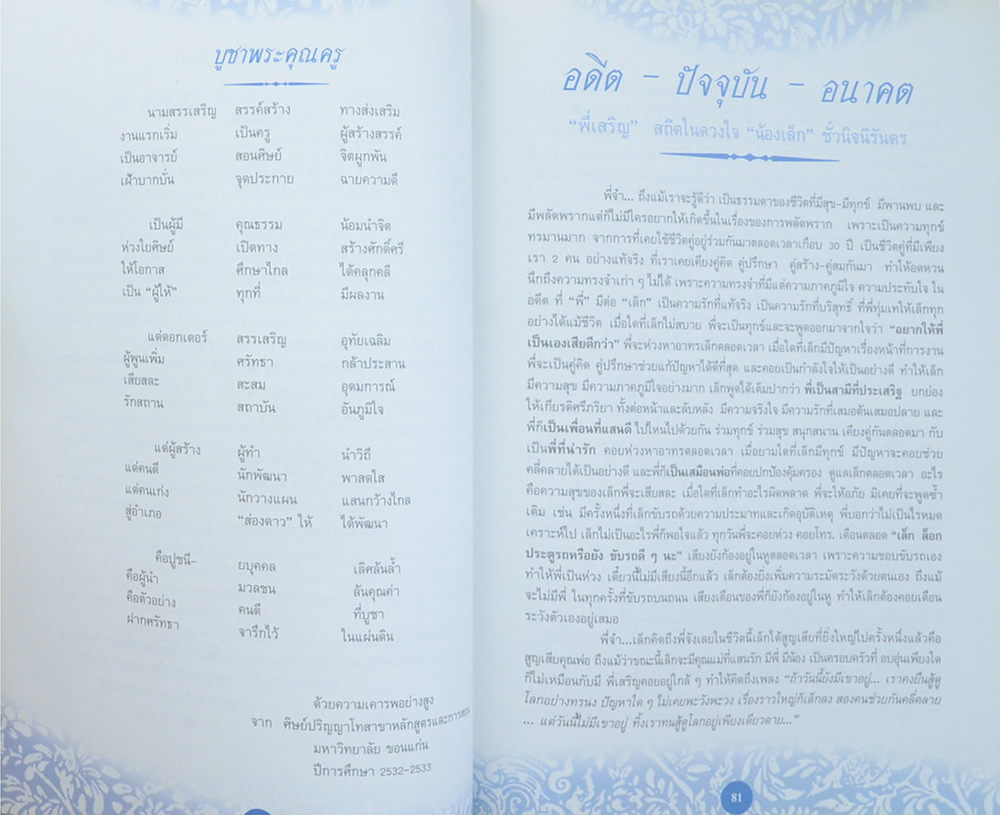 บูชาพระคุณครู
นามสรรเสริญ สรรค์สร้าง ทางส่งเสริม
งานแรกเริ่ม เป็นครู ผู้สร้างสรรค์
เป็นอาจารย์ สอนศิษย์ จิตผูกพัน
เฝ้าบากบั่น จุดประกาย ฉายความดี
เป็นผู้มี คุณธรรม น้อมนำจิต
ห่วงใยศิษย์ เปิดทาง สร้างศักดิ์ศรี
ให้โอกาส ศึกษาไกล ได้คลุกคลี
เป็น “ผู้ให้” ทุกที่ มีผลงาน
แด่ดอกเตอร์ สรรเสริญ อุทัยเฉลิม
ผู้พูนเพิ่ม ศรัทธา กล้าประสาน
เสียสละ สะสม อุดมการณ์
รักสถาน สถาบัน อันภูมิใจ
แด่ผู้สร้าง ผู้ทำ นำวิถี
แด่คนดี นักพัฒนา พาสดใส
แด่คนเก่ง นักวางแผน แสนกว้างไกล
สู่อำเภอ “ส่องดาว” ให้ ได้พัฒนา
คือปูชนี- ยบุคคล เลิศล้นล้ำ
คือผู้นำ มวลชน ล้นคุณค่า
คือตัวอย่าง คนดี ที่บูชา
ฝากศรัทธา จารึกไว้ ในแผ่นดิน
ด้วยความเคารพอย่างสูง
จาก ศิษย์ปริญญาโทสาขาหลักสูตรและการสอน
มหาวิทยาลัย ขอนแก่น
ปีการศึกษา 2532-2533
อดีต - ปัจจุบัน - อนาคต
“พี่เสริญ” สถิตในดวงใจ “น้องเล็ก” ชั่วนิจนิรันดร
พี่จ๋า... ถึงแม้เราจะรู้ดีว่า เป็นธรรมดาของชีวิตที่มีสุข-มีทุกข์ มีพานพบ และ
มีพลัดพรากแต่ก็ไม่มีใครอยากให้เกิดขึ้นในเรื่องของการพลัดพราก เพราะเป็นความทุกข์
ทรมานมาก จากการที่เคยใช้ชีวิตคู่อยู่ร่วมกันมาตลอดเวลาเกือบ 30 ปี เป็นชีวิตคู่ที่มีเพียง
เรา 2 คน อย่างแท้จริง ที่เราเคยเคียงคู่คิด คู่ปรึกษา คู่สร้าง-คู่สมกันมา ทำให้อดหวน
นึกถึงความทรงจำเก่า ๆ ไม่ได้ เพราะความทรงจำที่มีแต่ความภาคภูมิใจ ความประทับใจ ใน
อดีต ที่ “พี่” มีต่อ “เล็ก” เป็นความรักที่แท้จริง เป็นความรักที่บริสุทธิ์ ที่พี่ทุ่มเทให้เล็กทุก
อย่างได้แม้ชีวิต เมื่อใดที่เล็กไม่สบาย พี่จะเป็นทุกข์และจะพูดออกมาจากใจว่า “อยากให้พี่
เป็นเองเสียดีกว่า” พี่จะห่วงหาอาทรเล็กตลอดเวลา เมื่อใดที่เล็กมีปัญหาเรื่องหน้าที่การงาน
พี่จะเป็นคู่คิด คู่ปรึกษาช่วยแก้ปัญหาได้ดีที่สุด และคอยเป็นกำลังใจให้เป็นอย่างดี ทำให้เล็ก
มีความสุข มีความภาคภูมิใจอย่างมาก เล็กพูดได้เต็มปากว่า พี่เป็นสามีที่ประเสริฐ ยกย่อง
ให้เกียรติศรีภริยา ทั้งต่อหน้าและลับหลัง มีความจริงใจ มีความรักที่เสมอต้นเสมอปลาย และ
พี่ก็เป็นเพื่อนที่แสนดี ไปไหนไปด้วยกัน ร่วมทุกข์ ร่วมสุข สนุกสนาน เคียงคู่กันตลอดมา กับ
เป็นพี่ที่น่ารัก คอยห่วงหาอาทรตลอดเวลา เมื่อยามใดที่เล็กมีทุกข์ มีปัญหาจะคอยช่วย
คลี่คลายได้เป็นอย่างดี และพี่ก็เป็นเสมือนพ่อที่คอยปกป้องคุ้มครอง ดูแลเล็กตลอดเวลา อะไร
คือความสุขของเล็กพี่จะเสียสละ เมื่อใดที่เล็กทำอะไรผิดพลาด พี่จะให้อภัย มิเคยที่จะพูดซ้ำ
เติม เช่น มีครั้งหนึ่งที่เล็กขับรถด้วยความประมาทและเกิดอุบัติเหตุ พี่บอกว่าไม่เป็นไรหมด
เคราะห์ไป เล็กไม่เป็นอะไรพี่ก็พอใจแล้ว ทุกวันพี่จะคอยห่วง คอยโทร. เตือนตลอด “เล็ก ล็อก
ประตูรถหรือยัง ขับรถดี ๆ นะ” เสียงยังก้องอยู่ในหูตลอดเวลา เพราะความชอบขับรถเอง
ทำให้พี่เป็นห่วง เดี๋ยวนี้ไม่มีเสียงนี้อีกแล้ว เล็กต้องยิ่งเพิ่มความระมัดระวังด้วยตนเอง ถึงแม้
จะไม่มีพี่ ในทุกครั้งที่ขับรถบนถนน เสียงเตือนของพี่ก็ยังก้องอยู่ในหู ทำให้เล็กต้องคอยเตือน
ระวังตัวเองอยู่เสมอ
พี่จ๋า...เล็กคิดถึงพี่จังเลยในชีวิตนี้เล็กได้สูญเสียที่ยิ่งใหญ่ไปครั้งหนึ่งแล้วคือ
สูญเสียคุณพ่อ ถึงแม้ว่าขณะนี้เล็กจะมีคุณแม่ที่แสนรัก มีพี่ มีน้อง เป็นครอบครัวที่ อบอุ่นเพียงใด
ก็ไม่เหมือนกับมี พี่เสริญคอยอยู่ใกล้ ๆ ทำให้คิดถึงเพลง “ถ้าวันนี้ยังมีเขาอยู่... เราคงยืนสู้ดู
โลกอย่างทรนง ปัญหาใด ๆ ไม่เคยพะวังพะวง เรื่องราวใหญ่ก็เล็กลง สองคนช่วยกันคลี่คลาย
... แต่วันนี้ไม่มีเขาอยู่ ทิ้งเราทนสู้ดูโลกอยู่เพียงเดียวดาย...”
81